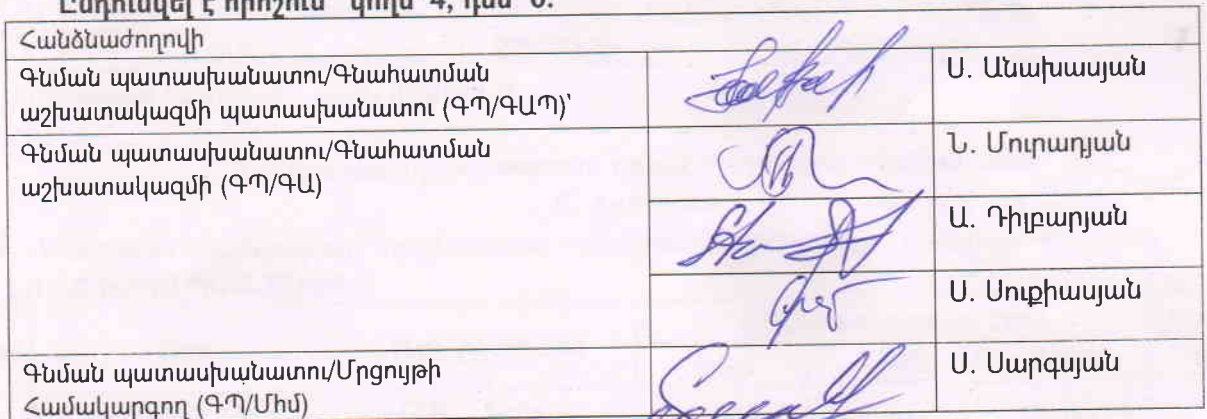 Ընդունվել է որոշում՝ կողմ՝ 4, դեմ՝ 0.
Հանձնաժողովի
Գնման պատասխանատու/Գնահատման
աշխատակազմի պատասխանատու (ԳՊ/ԳԱՊ)՝
Ս. Անախասյան
Գնման պատասխանատու/Գնահատման
աշխատակազմի (ԳՊ/ԳԱ)
Ն. Մուրադյան
Ա. Դիլբարյան
Ս. Սուքիասյան
Գնման պատասխանատու/Մրցույթի
Համակարգող (ԳՊ/Միմ)
Ս. Սարգսյան